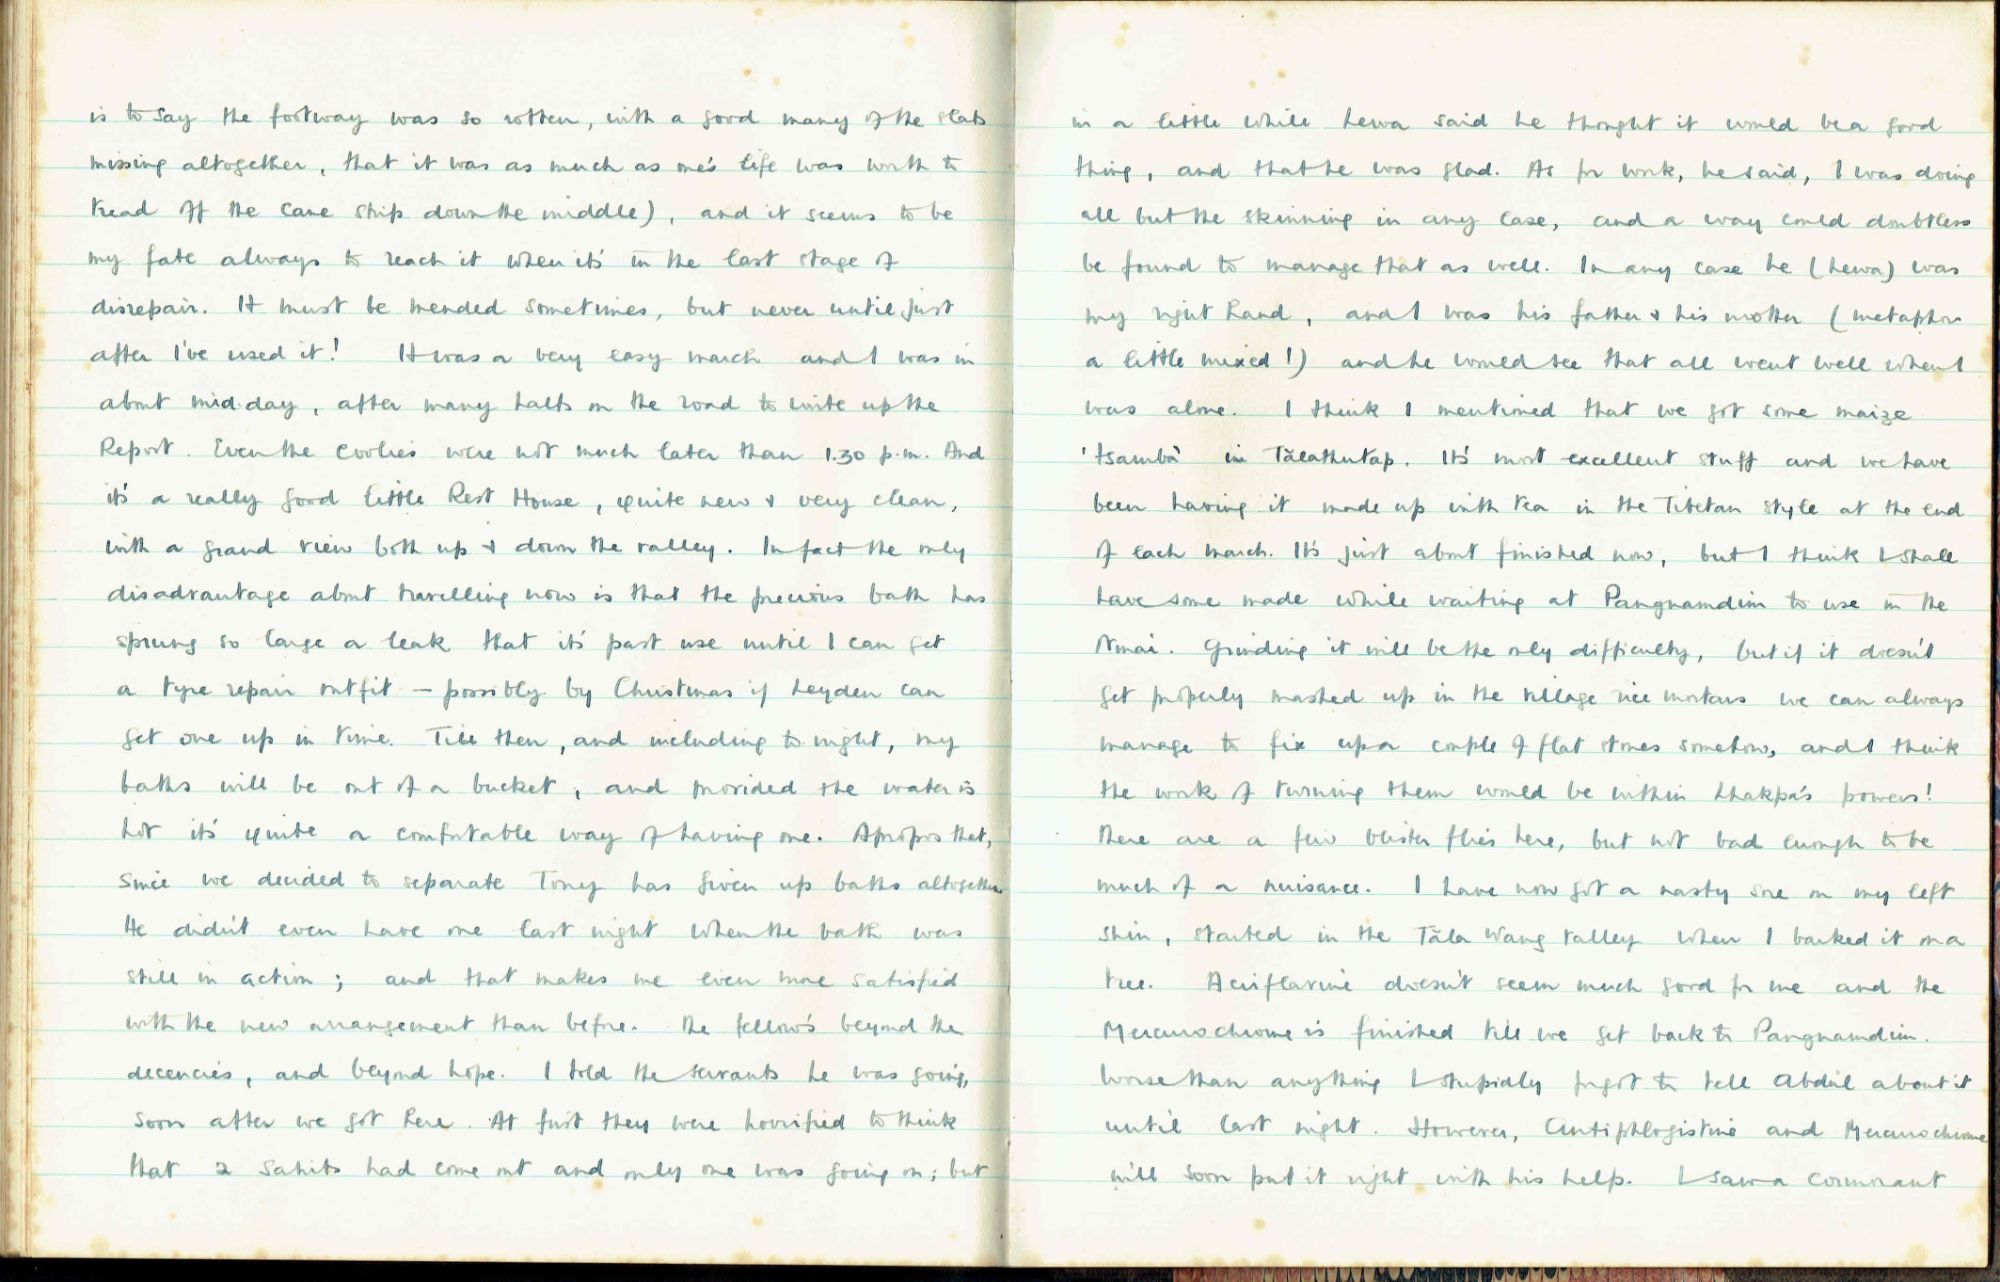 is to say the footway was so rotten, with a good many of the slats
missing altogether, that it was as much as one's life was worth to
tread off the cane strip down the middle), and it seems to be
my fate always to reach it when it's in the last stage of
disrepair. It must be mended sometimes, but never until just
after I've used it! It was a very easy march and I was in
about mid-day, after many halts on the road to write up the
Report. Even the coolies were not much later than 1.30 p.m. And
it's a really good little Rest House, quite new & very clean,
with a grand view both up & down the valley. In fact the only
disadvantage about travelling now is that the precious bath has
sprung so large a leak that it's past use until I can get
a tyre repair outfit – possibly by Christmas if Leyden can
get one up in time. Till then, and including to-night, my
baths will be out of a bucket, and provided the water is
hot it's quite a comfortable way of having one. Apropos that,
since we decided to separate Tony has given up baths altogether.
He didn't even have one last night when the bath was
still in action; and that makes me even more satisfied
with the new arrangement than before. The fellow's beyond the
decencies, and beyond hope. I told the servants he was going,
soon after we got here. At first they were horrified to think
that 2 Sahibs had come out and only one was going on; but
in a little while Lewa said he thought it would be a good
thing, and that he was glad. As for work, he said, I was doing
all but the skinning in any case, and a way could doubtless
be found to manage that as well. In any case he (Lewa) was
my right hand, and I was his father & his mother (metaphor
a little mixed!) and he would see that all went well when I
was alone. I think I mentioned that we got some maize
'tsamba' in Tālathutap. It's most excellent stuff and we have
been having it made up with tea in the Tibetan style at the end
of each march. It's just about finished now, but I think I shall
have some made while waiting at Pangnamdim to use in the
Nmai. Grinding it will be the only difficulty, but if it doesn't
get properly mashed up in the village rice mortars we can always
manage to fix up a couple of flat stones somehow, and I think
the work of turning them would be within Lhakpa's powers!
There are a few blister flies here, but not bad enough to be
much of a nuisance. I have now got a nasty sore on my left
shin, started in the Tāla Wang valley when I barked it on a
tree. Acriflavine doesn't seem much good for me and the
Mercurochrome is finished till we get back to Pangnamdim.
Worse than anything I stupidly forgot to tell Abdul about it
until last night. However, Antiphlogistine and Mercurochrome
will soon put it right with his help. I saw a cormorant